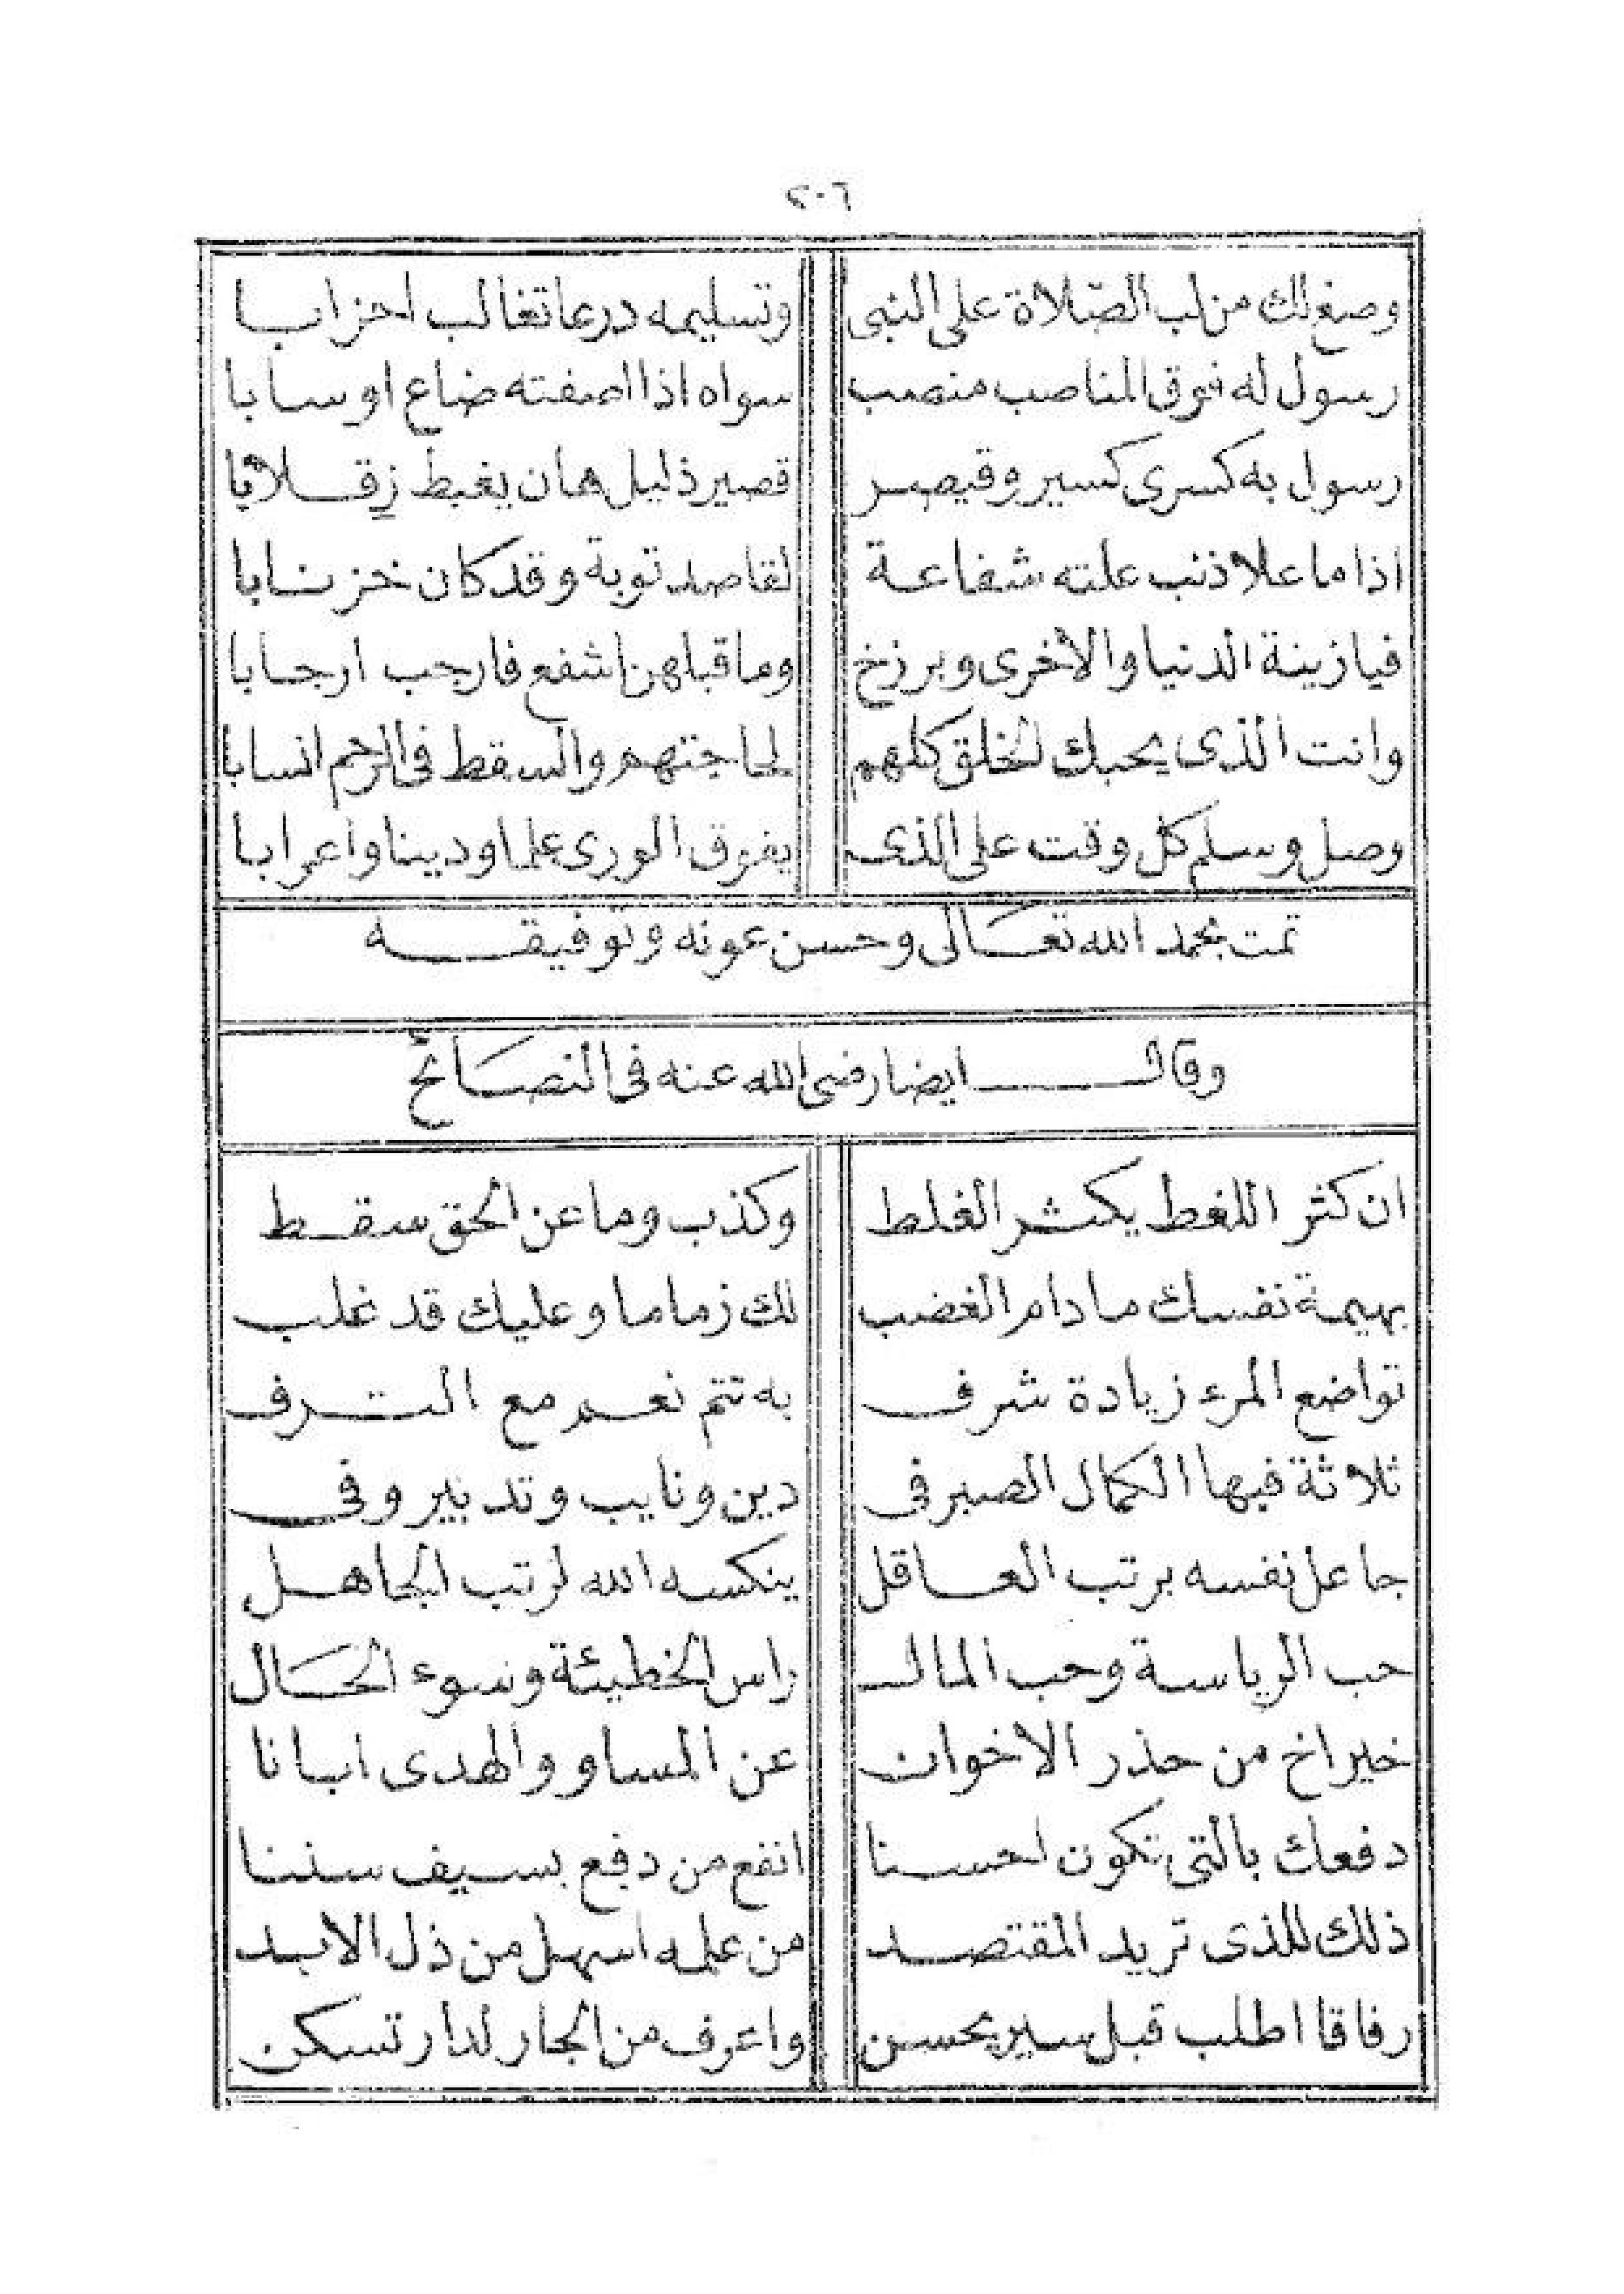 ٢٠٦
وصغ لك من لب الصّلاة على النبى وتسليمه درعا تغالب احزابا
رسول له فوق المناصب منصب سواه اذا اضفته ضاع او سابا
رسول به كسرى كسير وقيصر قصير ذليل هان يغبط زقلابا
اذا ما علا ذنب علته شفاعة لقاصد توبة وقد كان خزنابا
فيا زينة الدنيا والاخرى وبرزخ وما قبلهن اشفع فارجب ارجابا
وانت الذى يحبك الخلق كلهم لحاجتهم والسقط فى الرحم انسابا
وصل وسلم كل وقت على الذى يفوق الورى علما ودينا واعرابا
تمت بحمد الله تعالى وحسن عونه وتوفيقه
وقال ايضا رضى الله عنه فى النصائح
ان كثر اللغط يكثر الغلط وكذب وما عن الحق سقط
بهيمة نفسك ما دام الغضب لك زماما وعليك قد غلب
تواضع المرء زيادة شرف به تتم نعم مع الترف
ثلاثة فيها الكمال الصبر فى دين ونايب وتدبير وفى
جاعل نفسه برتب العاقل ينكسه الله لرتب الجاهل
حب الرياسة وحب المال راس الخطيئة وسوء الحال
خير اخ من حذر الاخوان عن المساو والهدى ابانا
دفعك بالتى تكون احسنا انفع من دفع بسيف سننا
ذلك للذى تريد المقتصد من علمه اسهل من ذل الابد
رفاقا اطلب قبل سير يحسن واعرف من الجار لدار تسكن